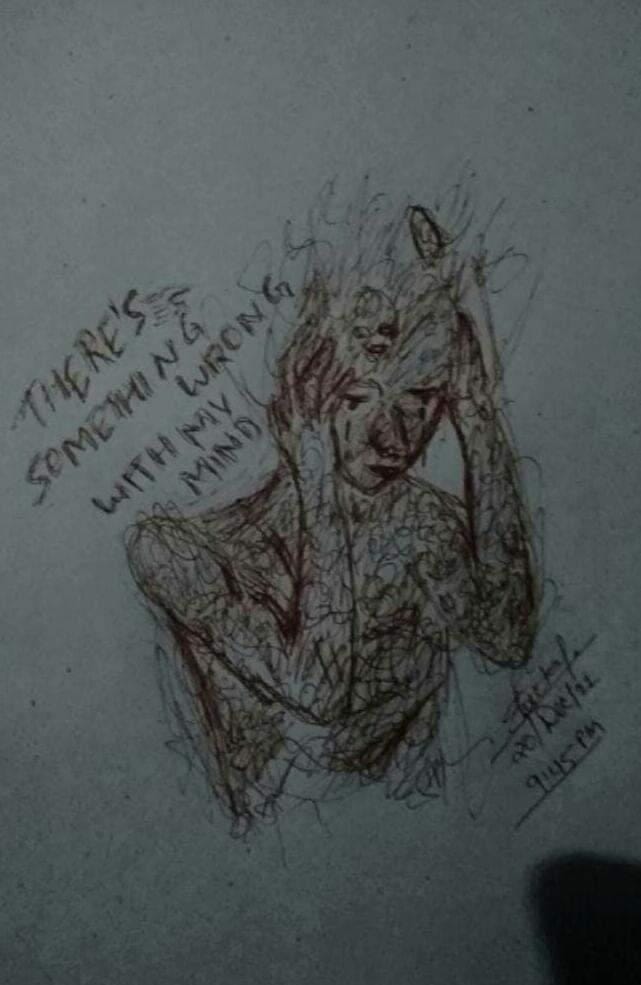 THERE'S
SOMETHING
WRONG
WITH MY
MIND
20/Dec/22
9:45 PM